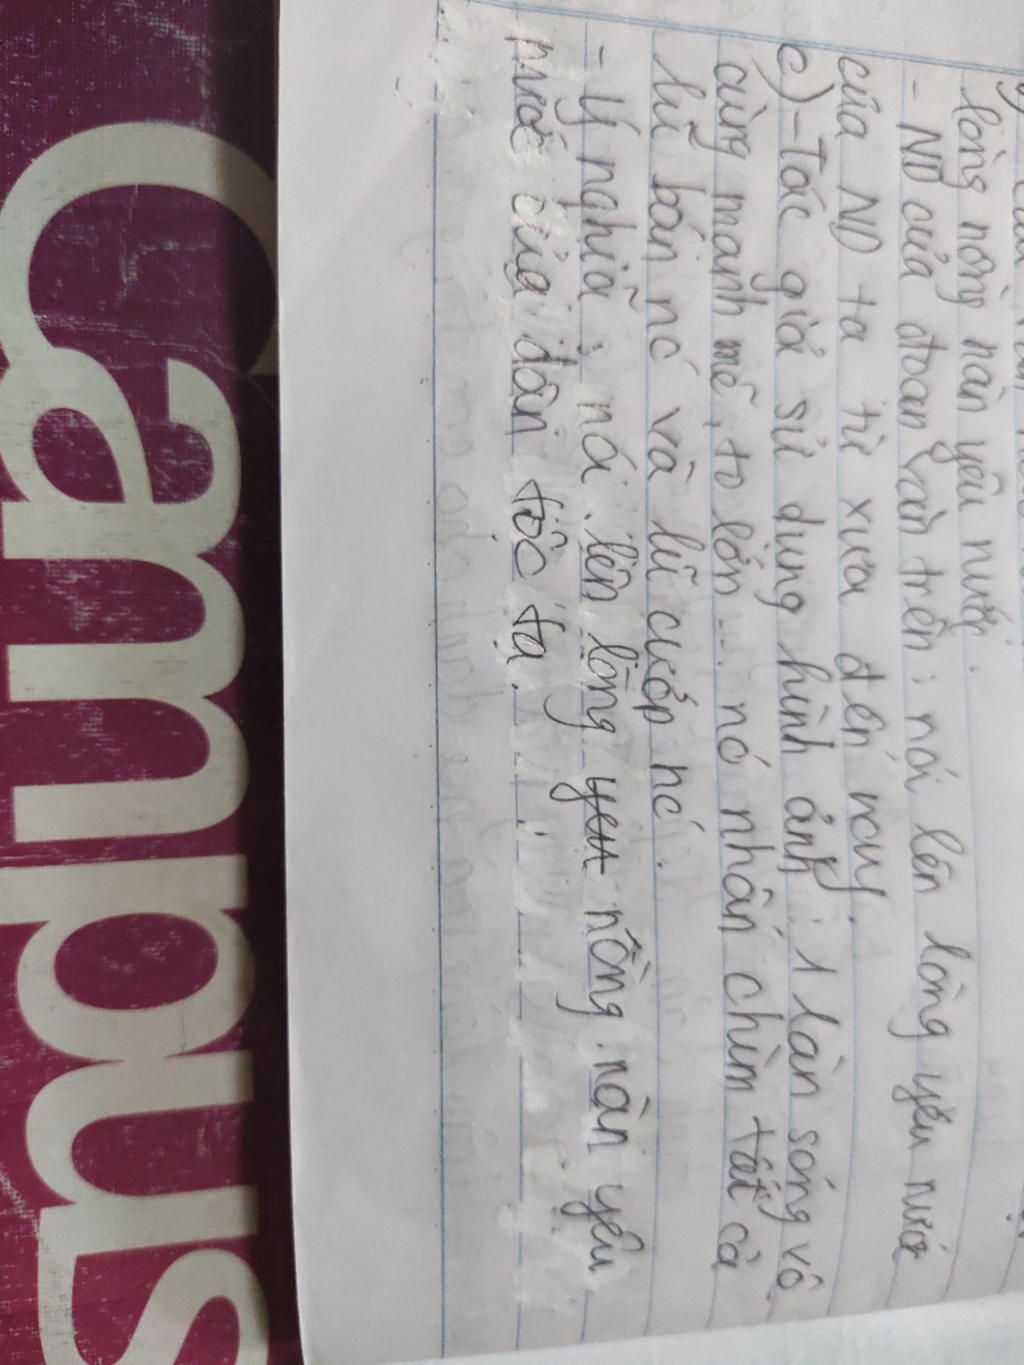 lòng nồng nàn yêu nước.
- ND của đoạn văn trên: nói lên lòng yêu nước
của ND ta từ xưa đến nay.
c) - Tác giả sử dụng hình ảnh: 1 làn sóng vô
cùng mạnh mẽ, to lớn ... nó nhấn chìm tất cả
lũ bán nc và lũ cướp nc.
- Ý nghĩa: nói lên lòng yeu nồng nàn yêu
nước của dân tộc ta.
Campus